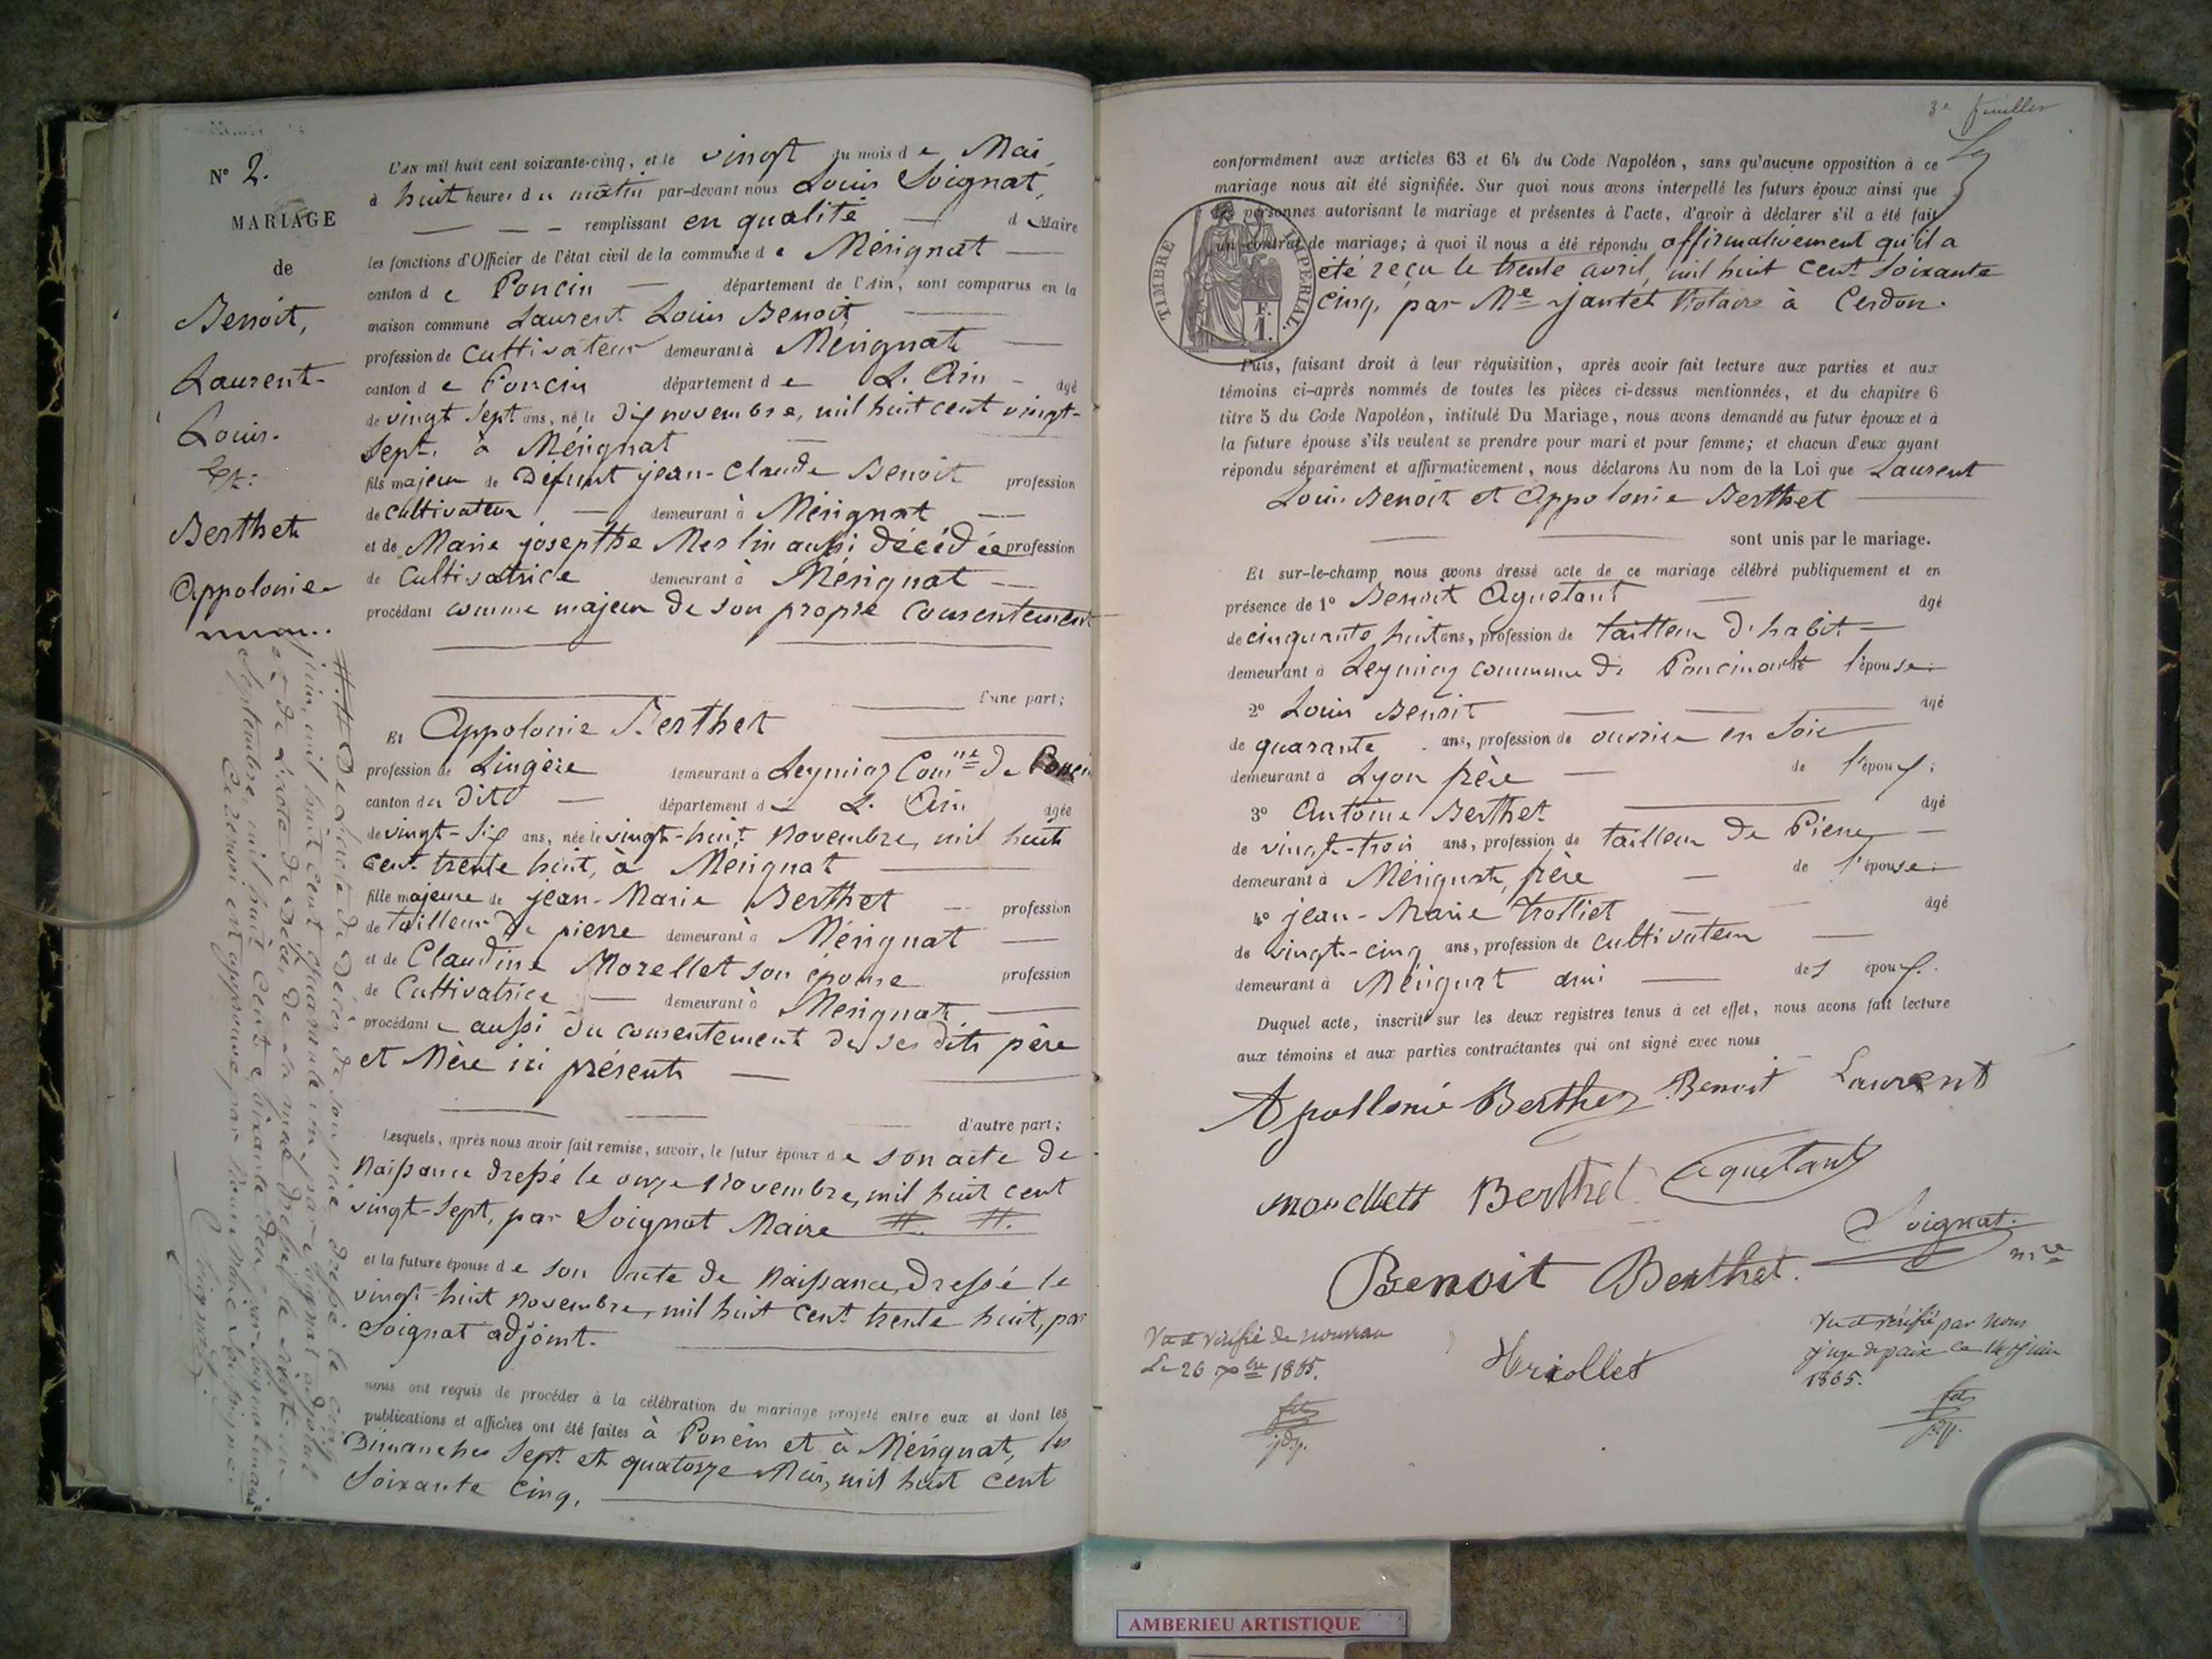 N° 2.
MARIAGE
de
Benoit,
Laurent-
Louis.
Et:
Berthet
Appolonie
L'AN mil huit cent soixante-cinq, et le vingt du mois de Mai,
à huit heures du matin par-devant nous Louis Soignat,
remplissant en qualité de Maire
les fonctions d'Officier de l'état civil de la commune de Mérignat
canton de Poncin département de l'Ain, sont comparus en la
maison commune Laurent Louis Benoit
profession de Cultivateur demeurant à Mérignat
canton de Poncin département de L. Ain âgé
de vingt sept ans, né le dix novembre, mil huit cent vingt-
sept. à Mérignat
fils majeur de Défunt jean-Claude Benoit profession
de Cultivateur demeurant à Mérignat
et de Marie josepthe Merlin aussi décédée profession
de Cultivatrice demeurant à Mérignat
procédant comme majeur de son propre consentement
d'une part;
Et Appolonie Berthet
profession de Lingère demeurant à Leymiaz Comne de Poncin
canton du dito département de L. Ain âgée
de vingt-six ans, née le vingt-huit Novembre, mil huit
cent trente huit, à Mérignat
fille majeure de jean-Marie Berthet profession
de tailleur de pierre demeurant à Mérignat
et de Claudine Morellet son épouse profession
de Cultivatrice demeurant à Mérignat
procédant e aussi du consentement de ses dits père
et Mère ici présents
d'autre part;
Lesquels, après nous avoir fait remise, savoir, le futur époux de son acte de
Naissance dressé le onze Novembre, mil huit cent
vingt-sept, par Soignat Maire #. #.
et la future épouse de son acte de Naissance, dressé le
vingt-huit novembre, mil huit cent trente huit, par
Soignat adjoint.
nous ont requis de procéder à la célébration du mariage projeté entre eux et dont les
publications et affiches ont été faites à Poncin et à Mérignat, les
Dimanches sept et quatorze Mai, mil huit cent
Soixante cinq.
#. # De L'acte de décès de son père dressé le cinq
juin, mil huit cent quarante cinq par Soignat adjoint
et de L'acte de Décès de sa mère dressé le vingt-un
Septembre, mil huit cent soixante deux par Soignat maire
Ce renvoi est approuvé par nous Maire soussigné.
Soignat
3e feuillet
conformément aux articles 63 et 64 du Code Napoléon, sans qu'aucune opposition à ce
mariage nous ait été signifiée. Sur quoi nous avons interpellé les futurs époux ainsi que
les personnes autorisant le mariage et présentes à l'acte, d'avoir à déclarer s'il a été fait
un contrat de mariage; à quoi il nous a été répondu affirmativement qu'il a
été reçu le trente avril, mil huit cent Soixante
cinq, par Me jantet Notaire à Cerdon.
TIMBRE IMPERIAL.
F.
1.
Puis, faisant droit à leur réquisition, après avoir fait lecture aux parties et aux
témoins ci-après nommés de toutes les pièces ci-dessus mentionnées, et du chapitre 6
titre 5 du Code Napoléon, intitulé Du Mariage, nous avons demandé au futur époux et à
la future épouse s'ils veulent se prendre pour mari et pour femme; et chacun d'eux ayant
répondu séparément et affirmativement, nous déclarons Au nom de la Loi que Laurent
Louis Benoit et Appolonie Berthet
sont unis par le mariage.
Et sur-le-champ nous avons dressé acte de ce mariage célébré publiquement et en
présence de 1° Benoit Aguetant âgé
de cinquante huit ans, profession de tailleur d'habit
demeurant à Leymiaz commune de Poncin l'épouse.
2° Louis Benoit âgé
de quarante ans, profession de ouvrier en Soie
demeurant à Lyon frère de l'époux;
3° Antoine Berthet âgé
de vingt-trois ans, profession de tailleur de Pierre
demeurant à Mérignat, frère de l'épouse.
4° jean-Marie trolliet âgé
de vingt-cinq ans, profession de cultivateur
demeurant à Mérignat ami des époux.
Duquel acte, inscrit sur les deux registres tenus à cet effet, nous avons fait lecture
aux témoins et aux parties contractantes qui ont signé avec nous
Apollonie Berthet Benoit Laurent
Berthet Aguetant
Soignat.
mre
Benoit Berthet.
Vu et vérifié de nouveau
Le 26 xbre 1865.
Vu et vérifié par nous
juge de paix ce 14 juin
1865.
AMBERIEU ARTISTIQUE